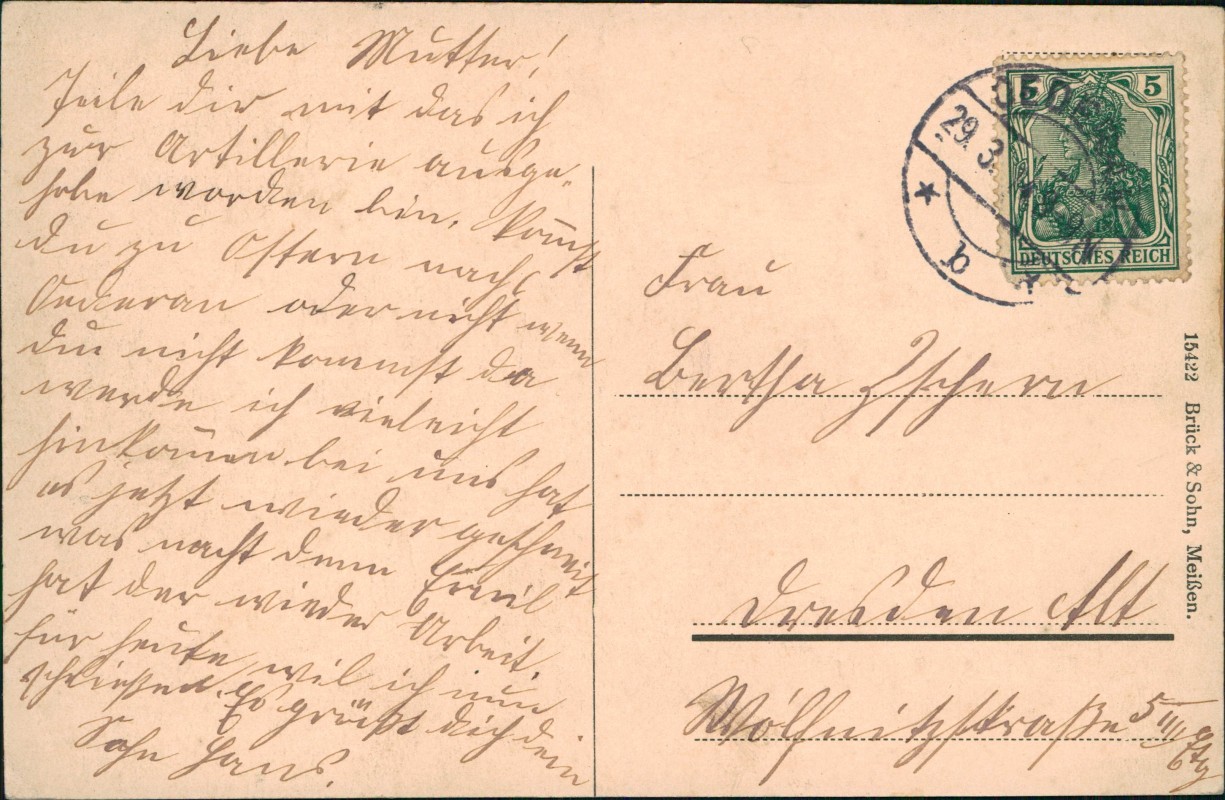 Liebe Mutter!
Teile dir mit das ich
zur Artillerie ausge-
hobe worden bin. Kom̅st
du zu Ostern nach
Oederan oder nicht wenn
du nicht kommst da
werde ich vieleicht
hinkom̅en bei uns hat
es jetzt wieder geschneit
was macht denn Emil
hat der wieder Arbeit.
für heute wil ich nun
schließen. Es grüßt dich dein
Sohn Hans.
5 5
DEUTSCHES REICH
29. 3.
b
Frau
Bertha Zschern
Dresden Alt
Wölfnitzstraße 5 III
15422 Brück & Sohn, Meißen.